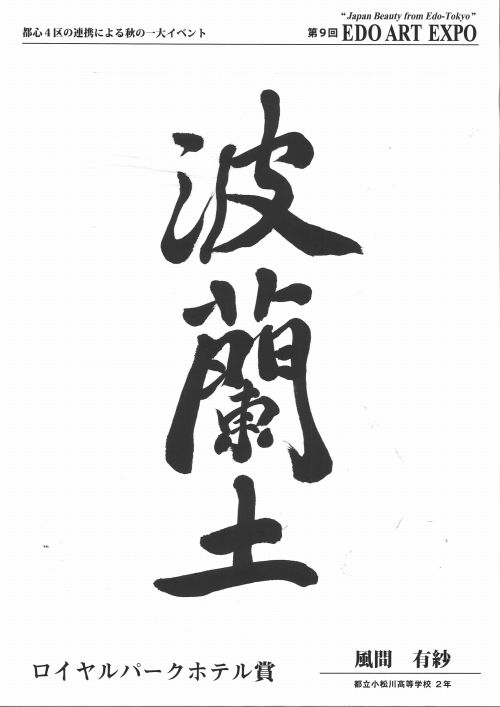 都心4区の連携による秋の一大イベント
"Japan Beauty from Edo-Tokyo"
第9回 EDO ART EXPO
波蘭土
ロイヤルパークホテル賞
風間 有紗
都立小松川高等学校 2年